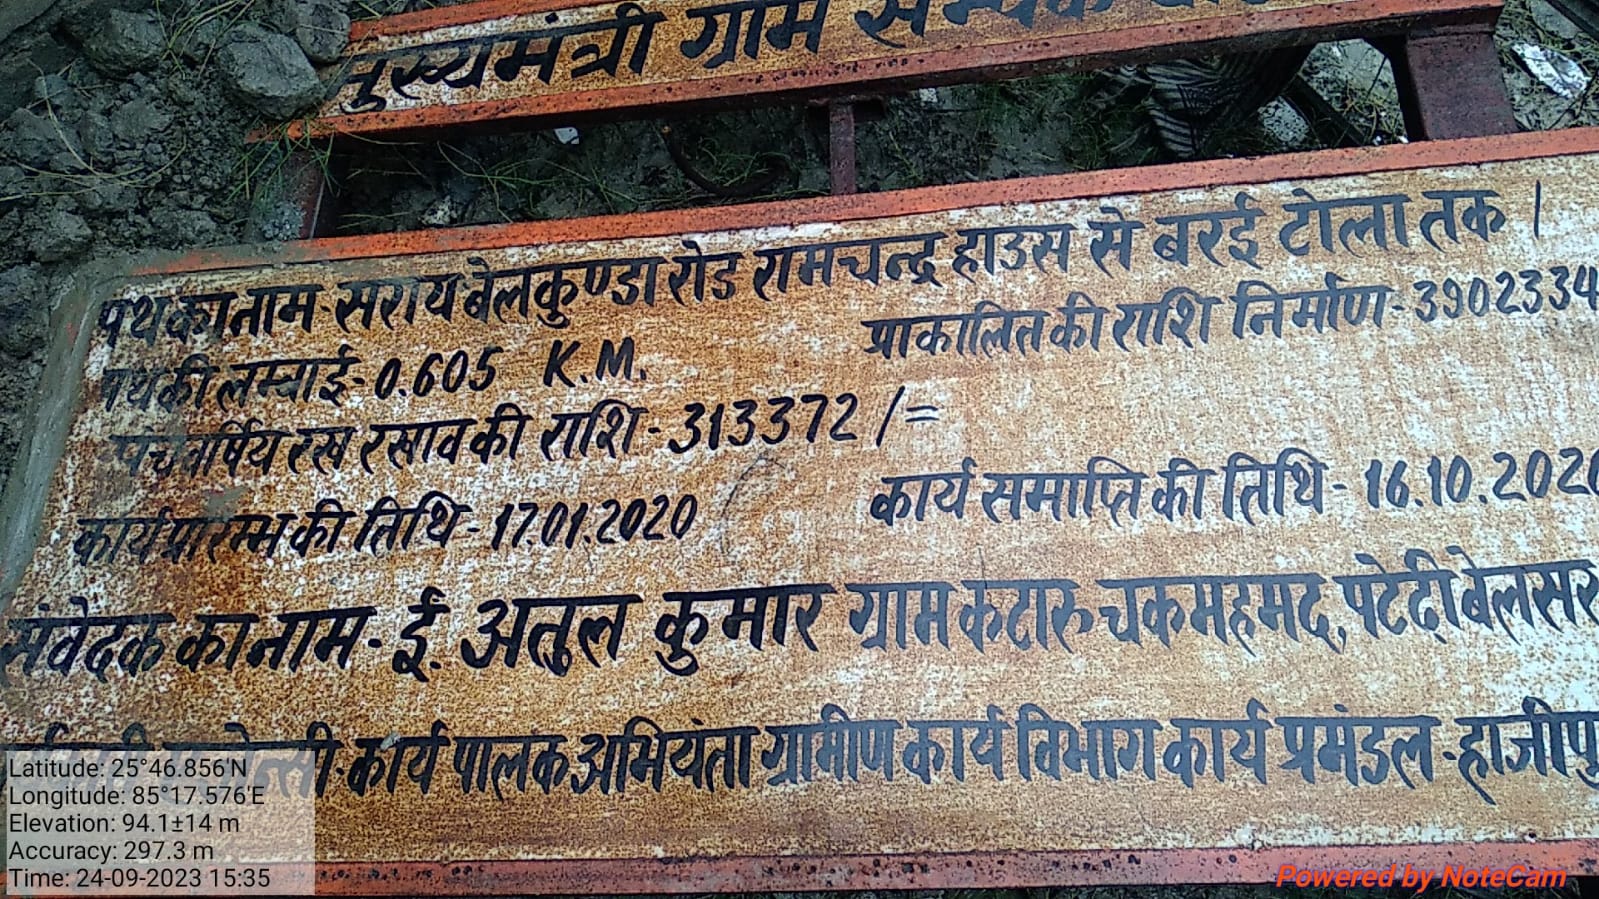 मुख्यमंत्री ग्राम सम्पर्क
पथ का नाम-सराय बेलकुण्डा रोड रामचन्द्र हाउस से बरई टोला तक ।
पथ की लम्बाई-0.605 K.M.
प्राकालित की राशि निर्माण-3902334
पंचवर्षिय रख रखाव की राशि-313372/=
कार्य प्रारम्भ की तिथि-17.01.2020
कार्य समाप्ति की तिथि-16.10.2020
संवेदक का नाम-ई. अतुल कुमार ग्राम कटारू चकमहमद, पटेढ़ी बेलसर
कार्य पालक अभियंता ग्रामीण कार्य विभाग कार्य प्रमंडल-हाजीपु
Latitude: 25°46.856'N
Longitude: 85°17.576'E
Elevation: 94.1±14 m
Accuracy: 297.3 m
Time: 24-09-2023 15:35
Powered by NoteCam